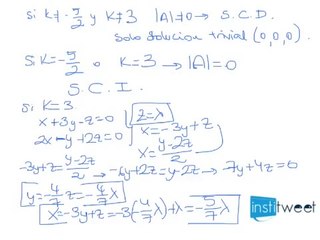 Si K≠-5/2 y K≠3 |A|≠0 → S.C.D.
Solo solucion trivial (0,0,0)
Si K=-5/2 o K=3 → |A|=0
S.C.I.
Si K=3
x+3y-z=0
2x-y+2z=0
z=λ
x=-3y+z
x=(y-2z)/2
-3y+z=(y-2z)/2 → -6y+2z=y-2z → 7y+4z=0
y=-4/7 z=-4/7 λ
x=-3y+z=-3(-4/7 λ)+λ=-5/7 λ
institweet